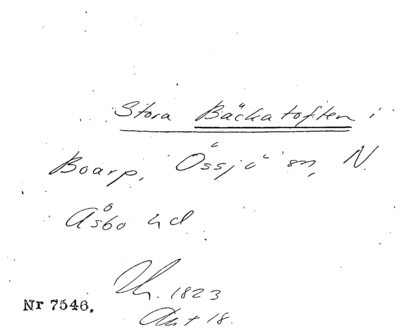 Stora Bäckatoften i
Boarp, Össjö sn, N.
Åsbo hd
1823
Akt 18.
Nr 7546.